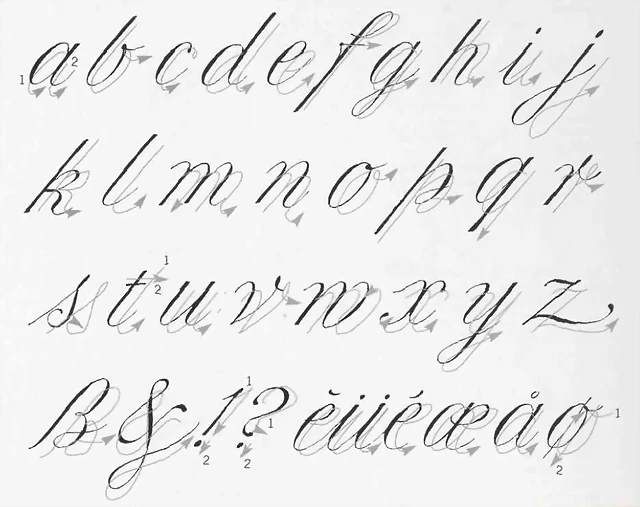 1 a 2 b c d e f g h i j
k l m n o p q r
s t 1 2 u v w x y z
ß & ! 2 ? 1 1 2 ü é æ å ø 1 2